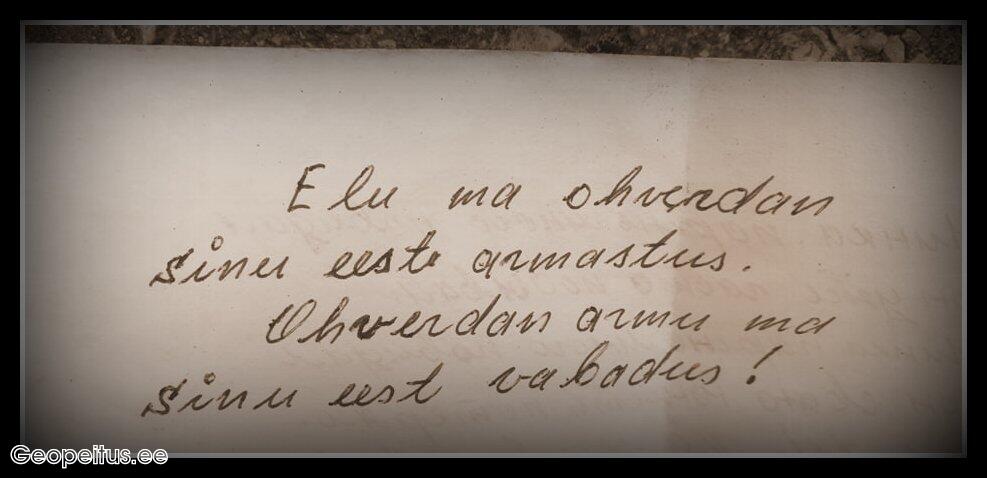 Elu ma ohverdan
sinu eest armastus.
Ohverdan armu ma
sinu eest vabadus!
Geopeitus.ee